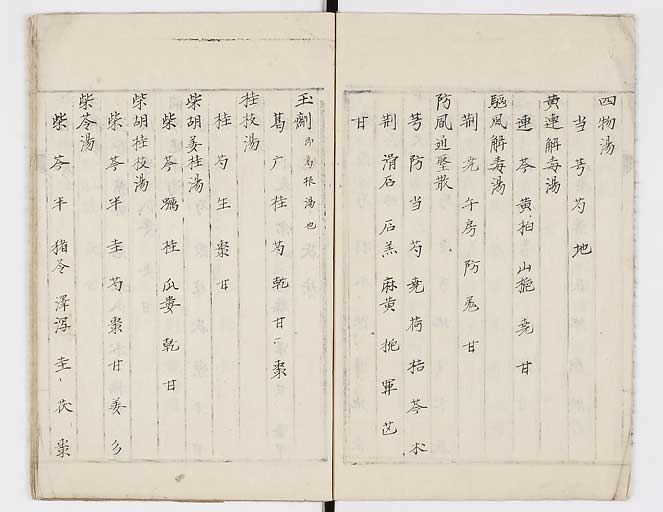 四物湯
当芎芍地
黄連解毒湯
連芩黄柏山梔 甘
駆風解毒湯
荆 牛房防 甘
防風 散
芎防当芍 荷桔芩朮
荆滑石石羔麻黄 軍芒
甘
玉劑 即葛根湯也
葛 桂芍乾甘棗
桂枝湯
桂芍生棗甘
柴胡姜桂湯
柴芩蠣桂瓜婁乾甘
柴胡桂枝湯
柴芩半圭芍棗甘姜
柴苓湯
柴芩半猪苓澤泻圭茯棗